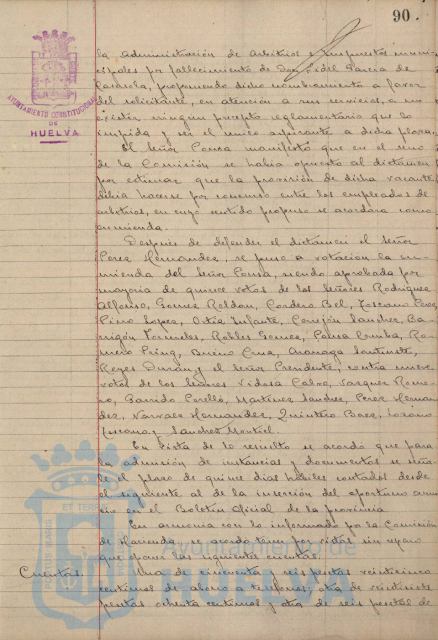 90.
AYUNTAMIENTO CONSTITUCIONAL
DE
HUELVA
la Administración de Arbitrios e impuestos muni-
cipales por fallecimiento de Don Fidel Garcia de
proponiendo dicho nombramiento a favor
del solicitante, en atención a sus servicios, a no
existir ningun precepto reglamentario que lo
impida y ser el unico aspirante a dicha plaza.
El Señor Ponsa manifestó que en el seno
de la Comisión se habia opuesto al dictamen
por estimar que la provisión de dicha vacante
debia hacerse por concurso entre los empleados de
arbitrios, en cuyo sentido propuso se acordara como
enmienda.
Despues de defender el dictámen el Señor
Perez Hernandez, se puso a votación la en-
mienda del Señor Ponsa, siendo aprobada por
mayoria de quince votos de los Señores Rodriguez
Alfonso, Gomez Roldan, Cordero Bel, Toscano Perez
Pino Lopez, Ortiz Infante, Cornejon Sanchez, Ba-
rrigón Robles Gomez, Ponsa Ro-
mero
Reyes Duran y el Señor Presidente, contra nueve
votos de los Señores Vidosa Calvo, Vazquez Rome-
ro, Garrido Perelló, Martinez Sanchez, Perez Hernan-
dez, Narvaez Hernandez, Quintero Baez, Lozano
y Sanchez Montiel.
En vista de lo resuelto se acordó que para
la admisión de instancias y documentos se seña-
le el plazo de quince dias hábiles contados desde
el siguiente al de la inserción del oportuno anun-
cio en el Boletin Oficial de la provincia
En armonia con lo informado por la Comisión
de Hacienda, se acordó tener por vistas sin reparo
que oponer las siguientes cuentas:
Cuentas. Una de cincuenta y seis pesetas veinticinco
centimos de abono a telefonos; otra de veintisiete
pesetas ochenta centimos y otra de seis pesetas de
HUELVA